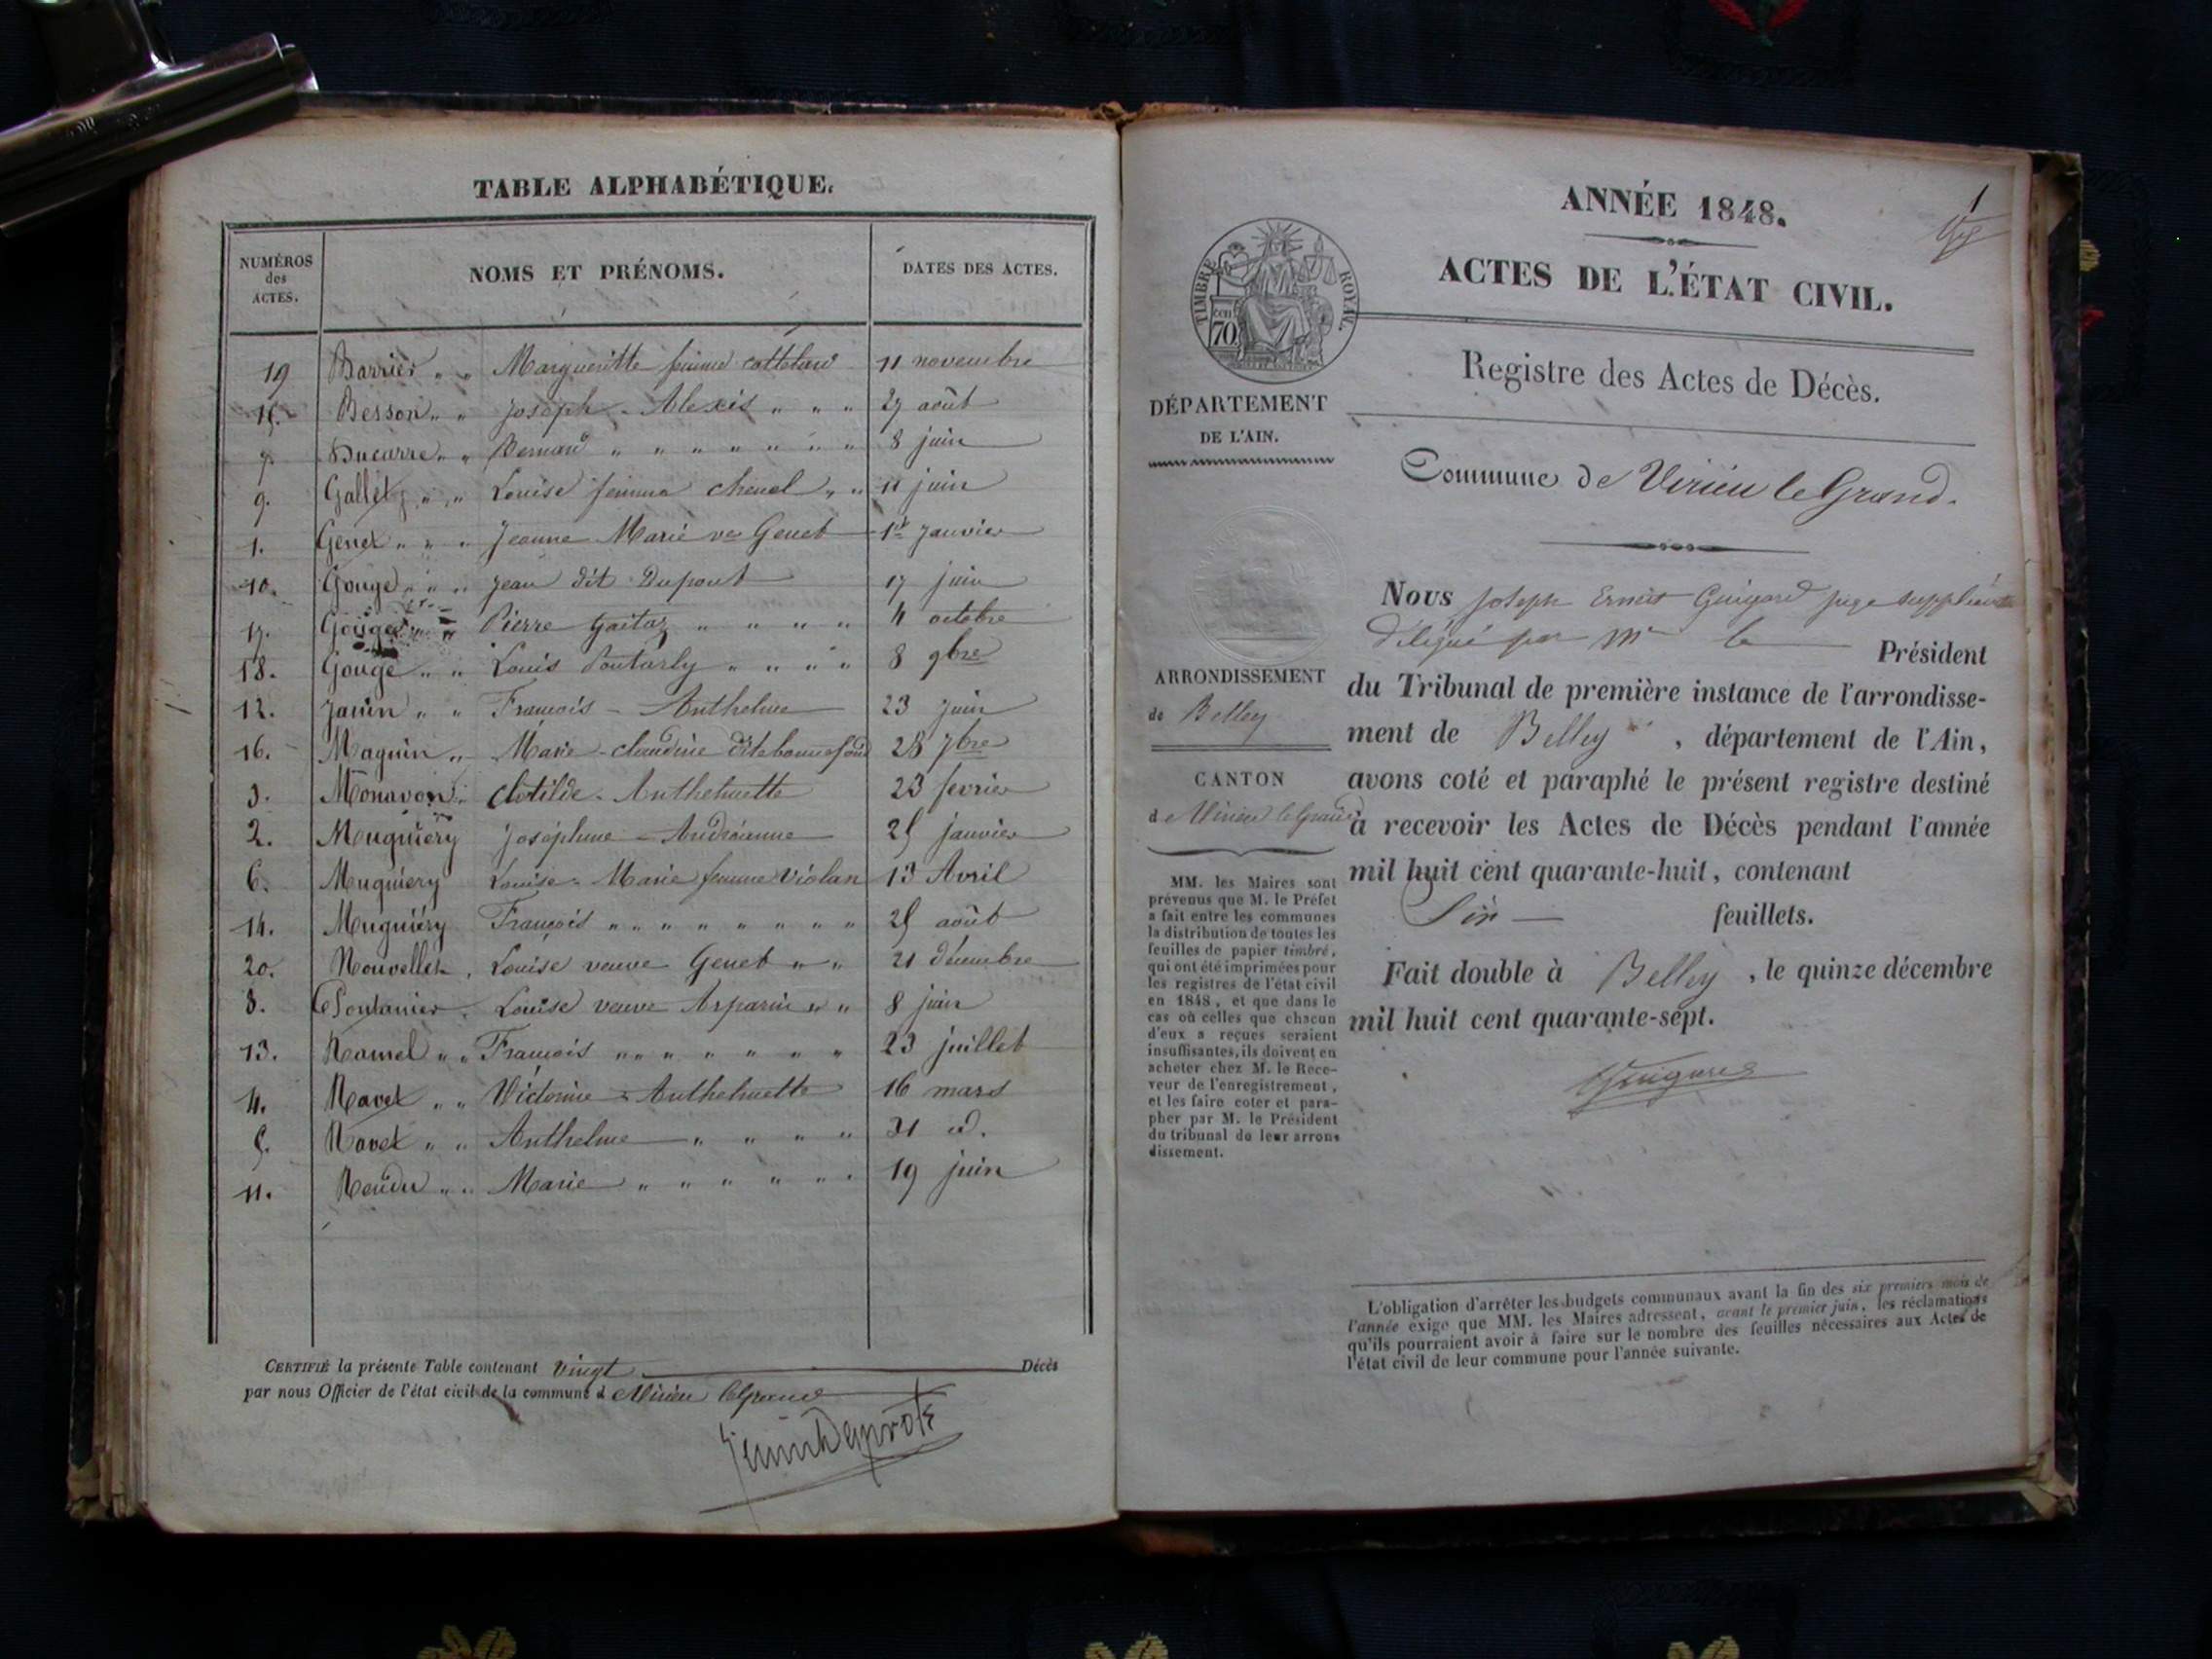 TABLE ALPHABÉTIQUE.
NUMÉROS des ACTES.
NOMS ET PRÉNOMS.
DATES DES ACTES.
19 Barrier „ „ Margueritte femme cottelard 11 novembre
15. Besson „ „ Joseph - Alexis „ „ „ 27 août
7. Ducarre „ „ Bernard „ „ „ „ „ „ „ 8 juin
9. Gallet „ „ Louise femme chenel „ „ 11 juin
1. Genet „ „ „ Jeanne Marie ve Genet 1er Janvier
10. Gouge „ „ „ Jean dit Dupont 17 juin
17. Gouge „ „ Pierre Gaitaz „ „ „ „ 4 octobre
18. Gouge „ „ Louis „ „ „ „ 8 9bre
12. Janin „ „ François - Anthelme 23 Juin
16. Maguin „ Marie - claudine dite bonnefond 28 7bre
3. Monavon „ Clotilde - Anthelmette 23 fevrier
2. Muguiery Joséphine - Andréanne 25 janvier
6. Muguiery Louise - Marie femme Violan 13 Avril
14. Muguiéry François „ „ „ „ „ „ „ „ 25 août
20. Nouvellet . Louise veuve Genet „ „ 21 décembre
8. Pontanier . Louise veuve Arparin „ „ 8 juin
13. Ramel „ „ François „ „ „ „ „ „ „ 23 juillet
4. Ravet „ „ Victorine - Anthelmette 16 mars
5. Ravet „ „ Anthelme „ „ „ „ 31 id.
11. Reudu „ „ Marie „ „ „ „ „ „ 19 juin
CERTIFIÉ la présente Table contenant Vingt Décès
par nous Officier de l'état civil de la commune d Virieu le grand
1
ANNÉE 1848.
ACTES DE L'ÉTAT CIVIL.
Registre des Actes de Décès.
TIMBRE ROYAL.
cen
70
DÉPARTEMENT
DE L'AIN.
Commune de Virieu le Grand.
ARRONDISSEMENT
de Belley
CANTON
d e Virieu le grand
MM. les Maires sont
prévenus que M. le Préfet
a fait entre les communes
la distribution de toutes les
feuilles de papier timbré,
qui ont été imprimées pour
les registres de l'état civil
en 1848, et que dans le
cas où celles que chacun
d'eux a reçues seraient
insuffisantes, ils doivent en
acheter chez M. le Rece-
veur de l'enregistrement,
et les faire coter et para-
pher par M. le Président
du tribunal de leur arron-
dissement.
Nous Joseph Ernest Guigard juge suppléant
délégué par Mr le Président
du Tribunal de première instance de l'arrondisse-
ment de Belley , département de l'Ain,
avons coté et paraphé le présent registre destiné
à recevoir les Actes de Décès pendant l'année
mil huit cent quarante-huit, contenant
Six feuillets.
Fait double à Belley , le quinze décembre
mil huit cent quarante-sept.
Guigard
L'obligation d'arrêter les budgets communaux avant la fin des six premiers mois de
l'année exige que MM. les Maires adressent, avant le premier juin, les réclamations
qu'ils pourraient avoir à faire sur le nombre des feuilles nécessaires aux Actes de
l'état civil de leur commune pour l'année suivante.